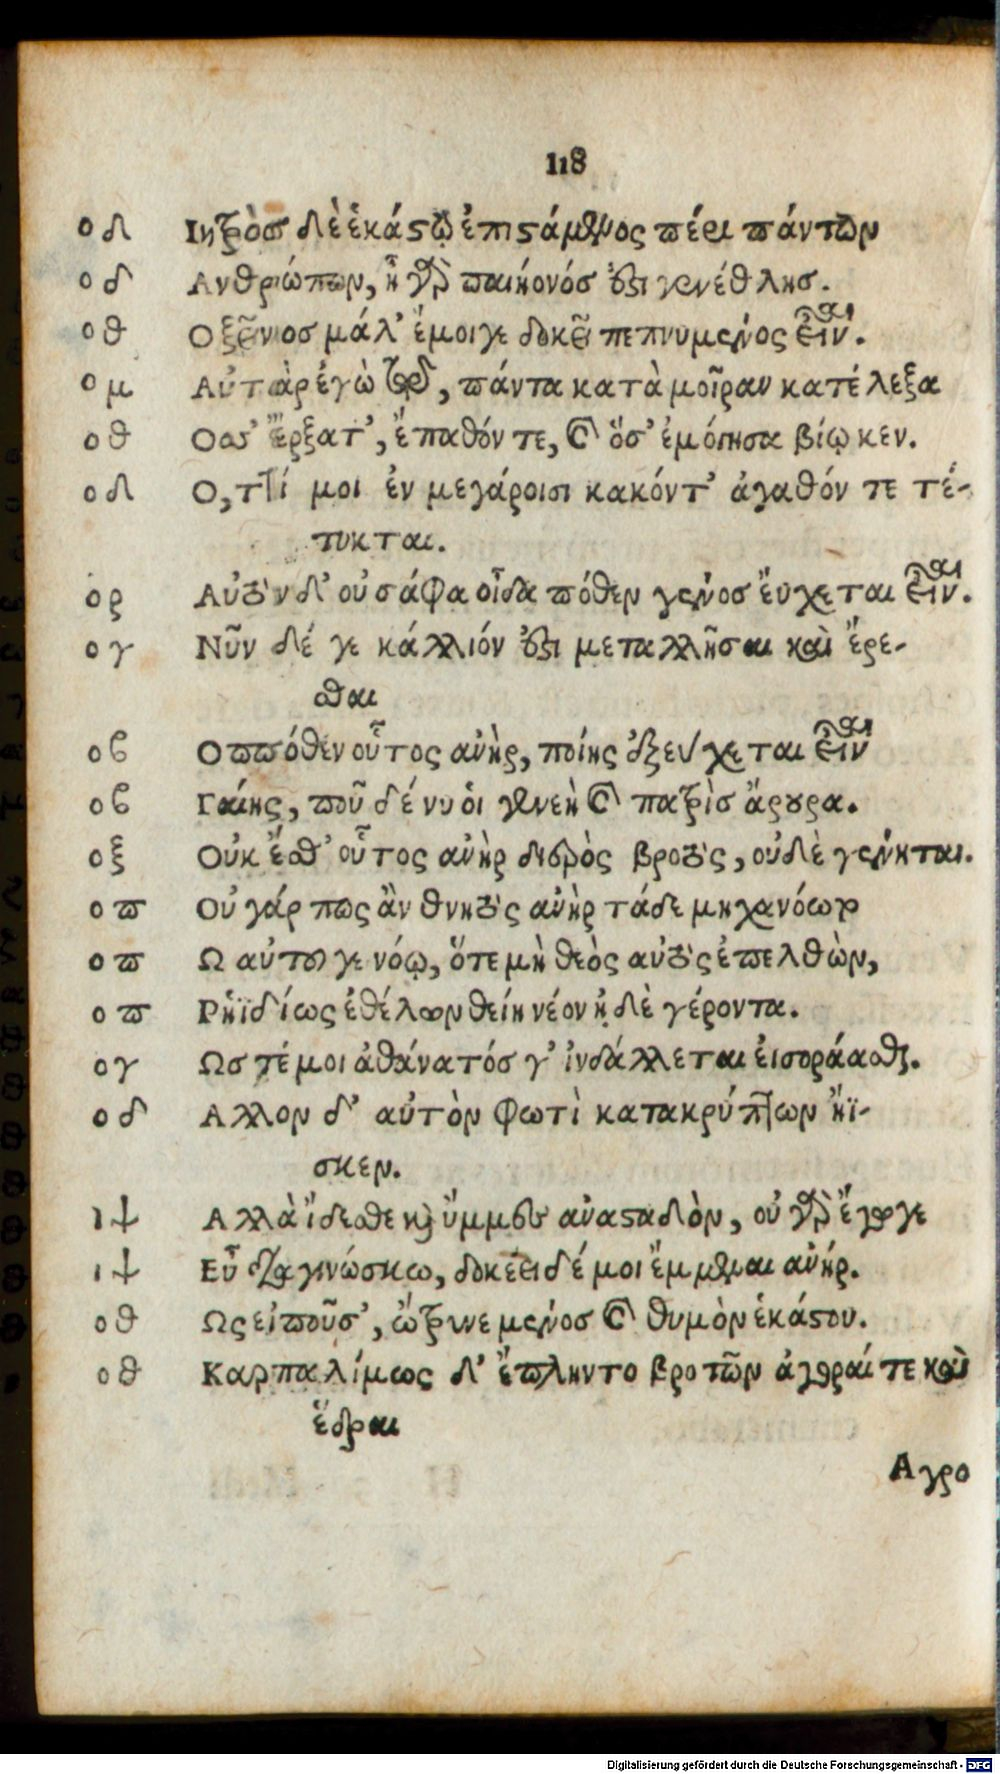 118
ο λ Ιητρὸσ δὲ ἑκάστῳ ἐπιστάμενος πέρι πάντων
ο δ Ανθρώπων, ἦ γὰρ παιήονόσ ἐστι γενέθλησ.
ο θ Ο ξεῖνοσ μάλ' ἔμοιγε δοκεῖ πεπνυμένος εἶναι.
ο μ Αὐτὰρ ἐγὼ τῷδ, πάντα κατὰ μοῖραν κατέλεξα
ο θ Οσσ' ἔρξατ', ἔπαθόν τε, καὶ ὅσ' ἐμόγησα βίῳ κεν.
ο λ Ο,ττί μοι ἐν μεγάροισι κακόντ' ἀγαθόν τε τέ-
τυκται.
ο ρ Αὐτὸν δ' οὐ σάφα οἶδα πόθεν γένοσ ἔυχεται εἶναι.
ο γ Νῦν δέ γε κάλλιόν ἐστι μεταλλῆσαι καὶ ἔρε-
σθαι
ο ϐ Οππόθεν οὗτος ἀνὴρ, ποίης δ' ἐξεύχεται εἶναι
ο ϐ Γαίης, ποῦ δέ νυ οἱ γενεὴ καὶ πατρὶσ ἄρουρα.
ο ξ Ουκ ἔσθ' οὗτος ἀνὴρ διερὸς βροτὸς, οὐδὲ γένηται.
ο π Οὐ γάρ πως ἂν θνητὸς ἀνὴρ τάδε μηχανόωτο
ο π Ω αὐτοῦ γε νόῳ, ὅτε μὴ θεὸς αὐτὸς ἐπελθὼν,
ο π Ρηϊδίως ἐθέλων θείη νέον ἠδὲ γέροντα.
ο γ Ωσ τέ μοι ἀθάνατόσ γ' ἰνδάλλεται ἐισοράασθαι.
ο δ Αλλον δ' αὐτὸν φωτὶ κατακρύπτων ἤϊ-
σκεν.
ι ψ Αλλὰ ἴδεσθε καὶ ὔμμες ἀνασταδὸν, οὐ γὰρ ἔγωγε
ι ψ Εὖ διαγινώσκω, δοκέει δέ μοι ἔμμεναι ἀνήρ.
ο θ Ως εἰποῦσ', ὤτρυνε μένοσ καὶ θυμὸν ἑκάστου.
ο θ Καρπαλίμως δ' ἔπληντο βροτῶν ἀγοραί τε καὶ
ἕδραι
Αγρο
Digitalisierung gefördert durch die Deutsche Forschungsgemeinschaft - DFG